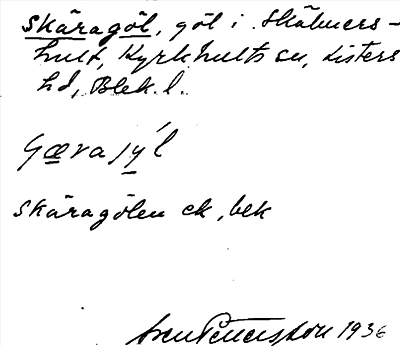 Skäragöl, göl i Skälmers-
hult, Kyrkhults sn, Listers
hd, Blek. l.
Skäragölen ek, bek
Sven Pettersson 1936